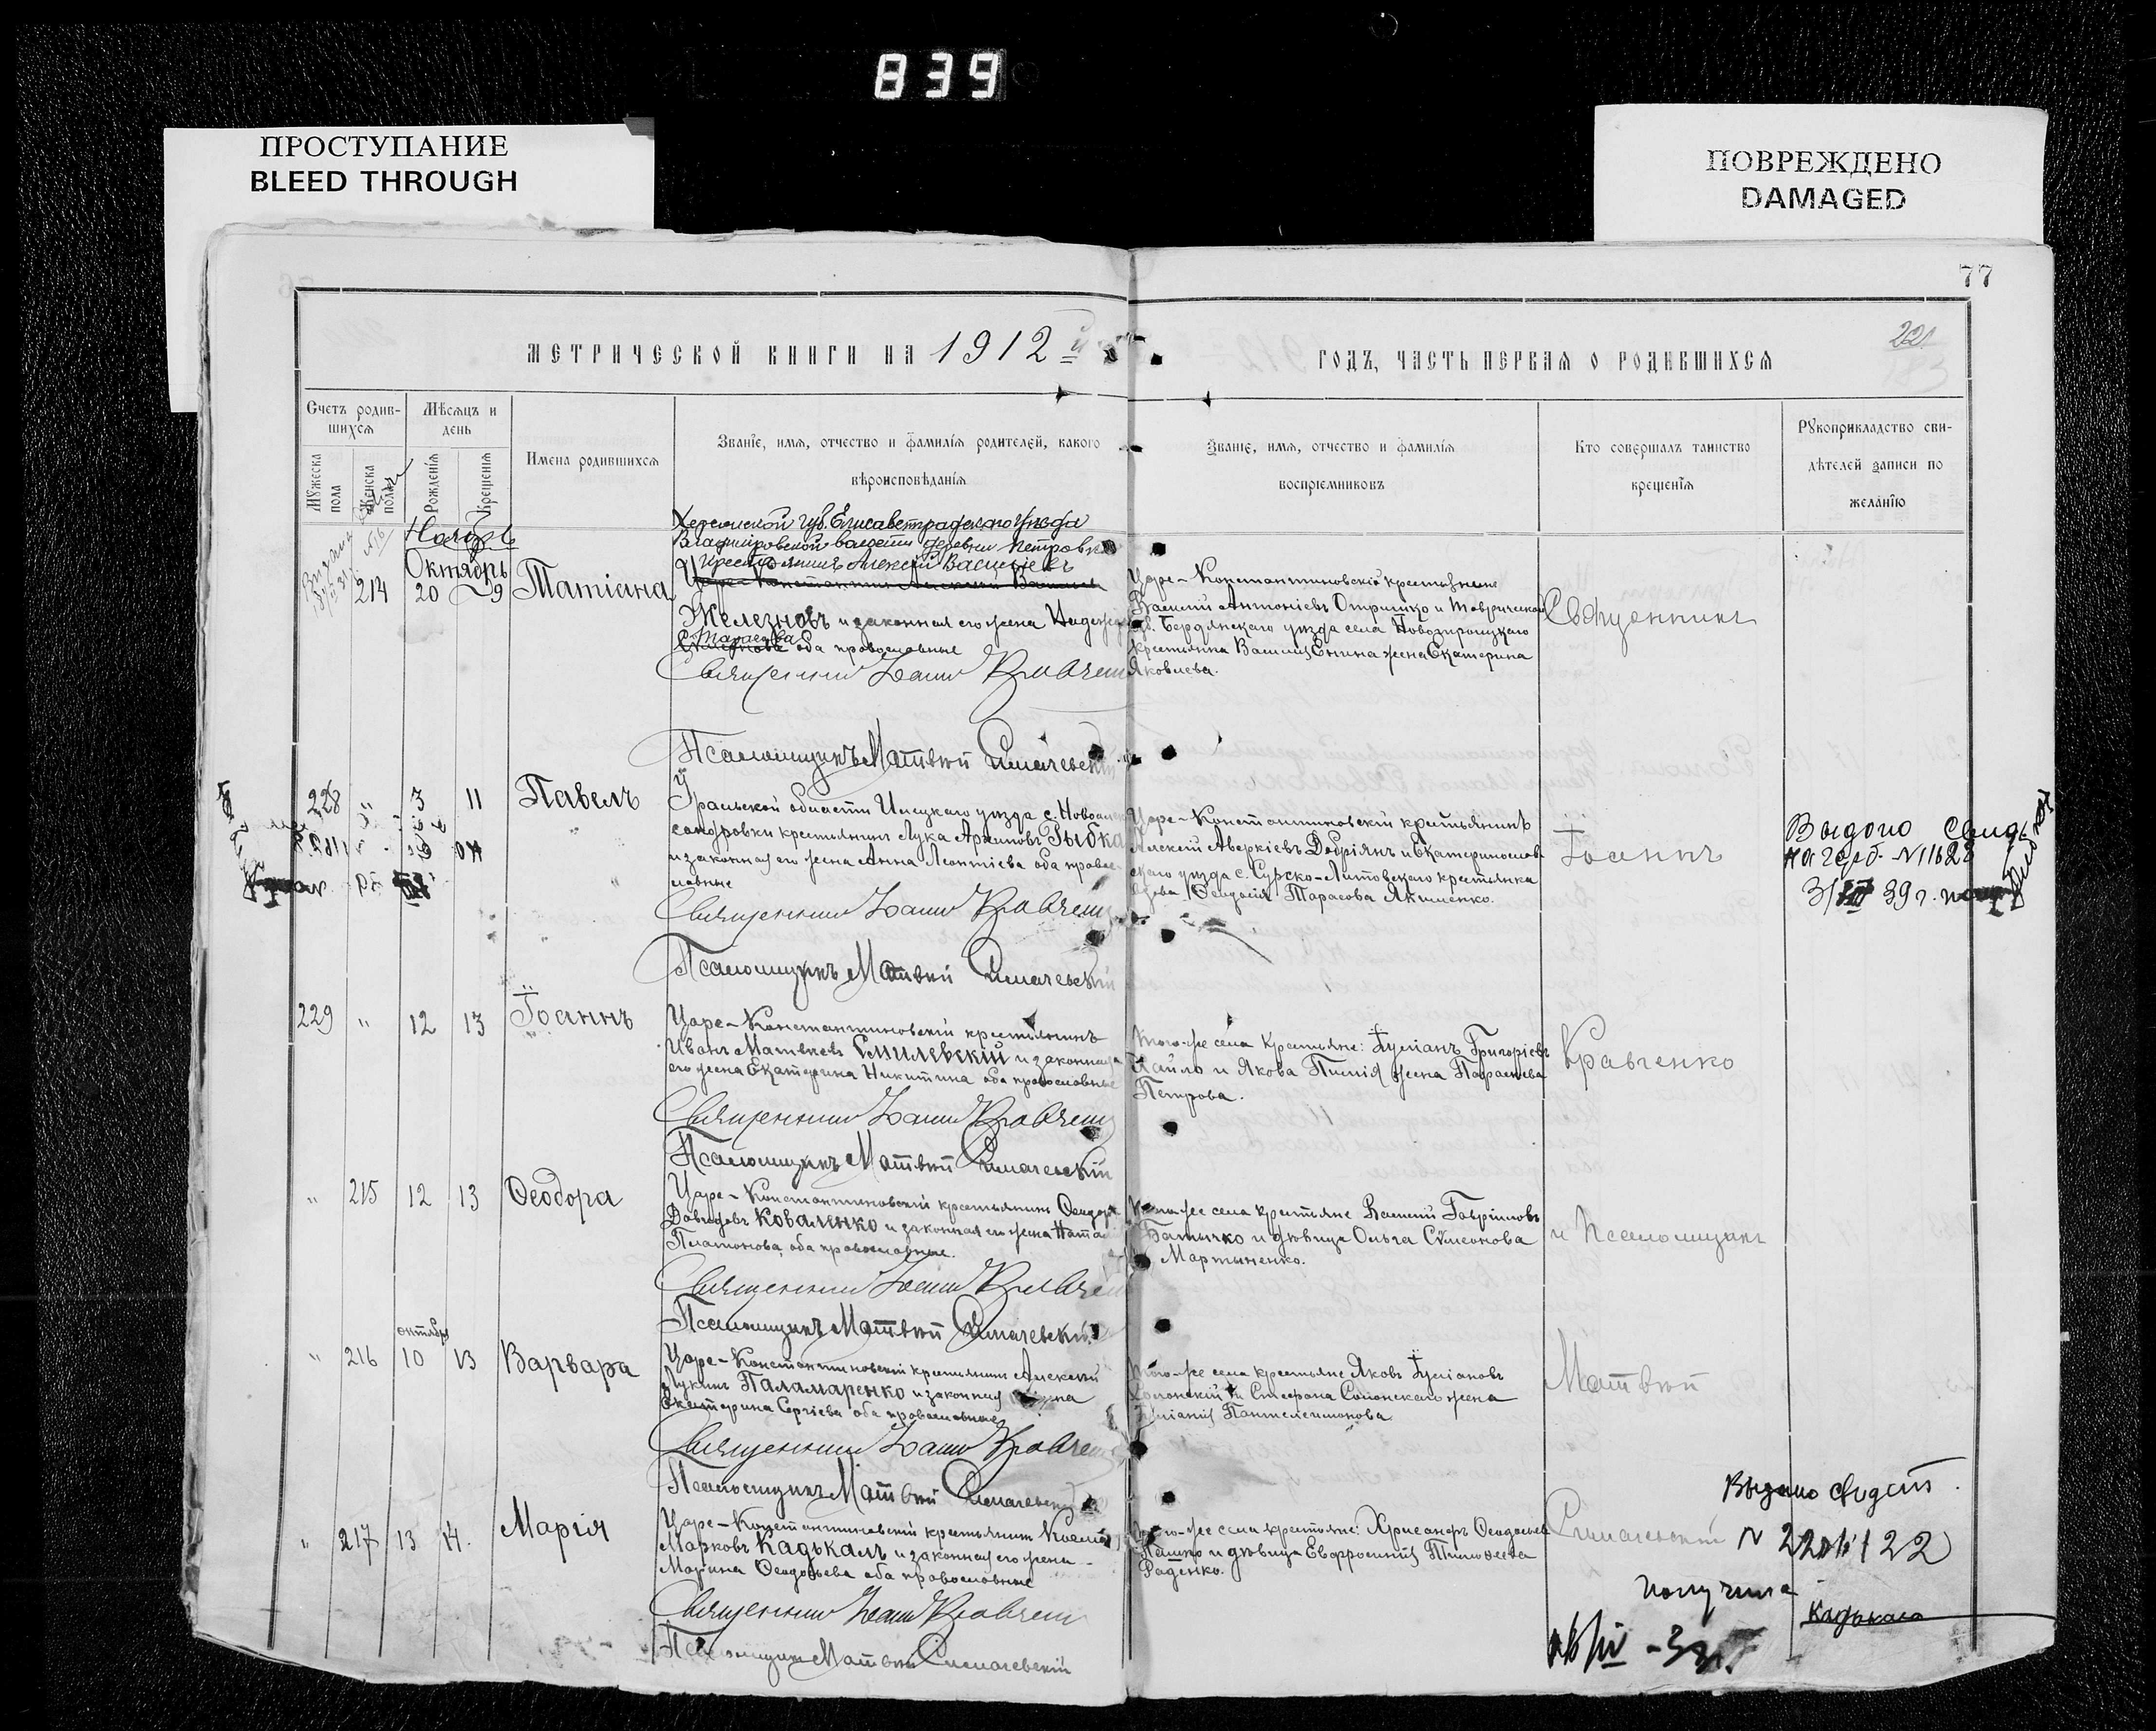 839
ПРОСТУПАНИЕ
BLEED THROUGH
ПОВРЕЖДЕНО
DAMAGED
77
МЕТРИЧЕСКОЙ КНИГИ НА 1912 й
ГОДЪ, ЧАСТЬ ПЕРВАЯ О РОДИВШИХСЯ
221
183
Счетъ родив-
шихся
Мѣсяцъ и
день
Мужеска
пола
Женска
пола
Рожденія
Крещенія
Имена родившихся
Званіе, имя, отчество и фамилія родителей, какого
вѣроисповѣданія
Званіе, имя, отчество и фамилія
воспріемниковъ
Кто совершалъ таинство
крещенія
Рукоприкладство сви-
дѣтелей записи по
желанію
Ноябрь
Октябрь
214 20 29 Татіана
Херсонской губ. Елисаветградскаго уѣзда
Владиміровской волости деревни Петровки
крестьянинъ Алексій Васильевъ
Царе-Константин Алексій Васильев
Железновъ и законная его жена Надежда
Тарасова
оба православные
Священник Іоанн Кравченко
Псаломщикъ Матвѣй Симачевскій
Царе-Константиновскій крестьянинъ
Василій Антоніевъ Опришко и Таврической
губ. Бердянскаго уѣзда села Новотроицкаго
крестьянина Василія Енина жена Екатерина
Яковлева.
Священникъ
228 " 3 11 Павелъ
Уральской области Илецкаго уѣзда с. Новоалек
сандровки крестьянин Лука Архиповъ Зыбка
и законная его жена Анна Леонтіева оба право
славные
Священник Іоанн Кравченко
Псаломщикъ Матвѣй Симачевскій
Царе-Константиновскій крестьянинъ
Алексій Аверкіевъ Добріянъ и Екатеринослав
скаго уѣзда с. Сурско-Литовскаго крестьянка
Феодосія Тарасова Якименко.
Іоаннъ
Выдано свид.
на герб. N11628
3/VIII 39 г.
229 " 12 13 Іоаннъ
Царе-Константиновскій крестьянинъ
Иванъ Матвѣевъ Смилевскій и законная
его жена Екатерина Никитина оба православные
Священник Іоанн Кравченко
Псаломщикъ Матвѣй Симачевскій
того-же села крестьяне: Іуліанъ Григоріевъ
Кайло и Якова Пилія жена Параскева
Петрова.
Кравченко
" 215 12 13 Ѳеодора
Царе-Константиновскій крестьянинъ Ѳеодоръ
Давидовъ Коваленко и законная его жена Ната
Платонова, оба православные.
Священник Іоанн Кравченко
Псаломщикъ Матвѣй Симачевскій
того-же села крестьяне Василій Гавріиловъ
Батычко и дѣвица Ольга Сѵмеонова
Мартыненко.
и Псаломщикъ
октября
" 216 10 13 Варвара
Царе-Константиновскій крестьянинъ Алексій
Лукинъ Паламаренко и законная жена
Екатерина Сергіева оба православные
Священник Іоанн Кравченко
Псаломщикъ Матвѣй Симачевскій
того-же села крестьяне Яковъ Іуліановъ
Солонскій и Стефана Солонскаго жена
Іуліанія Пантелеимонова
Матвѣй
" 217 13 14. Марія
Царе-Константиновскій крестьянинъ Косма
Марковъ Кадькалъ и законная его жена
Марина Ѳеодосьева оба православные
Священник Іоанн Кравченко
Псаломщик Матвѣй Симачевскій
того-же села крестьяне: Хрисанфъ Ѳеодосьевъ
Пашко и дѣвица Евфросинія Тимоѳеева
Раденко.
Симачевскій
Выдано свидет.
N
получила
Кадькало